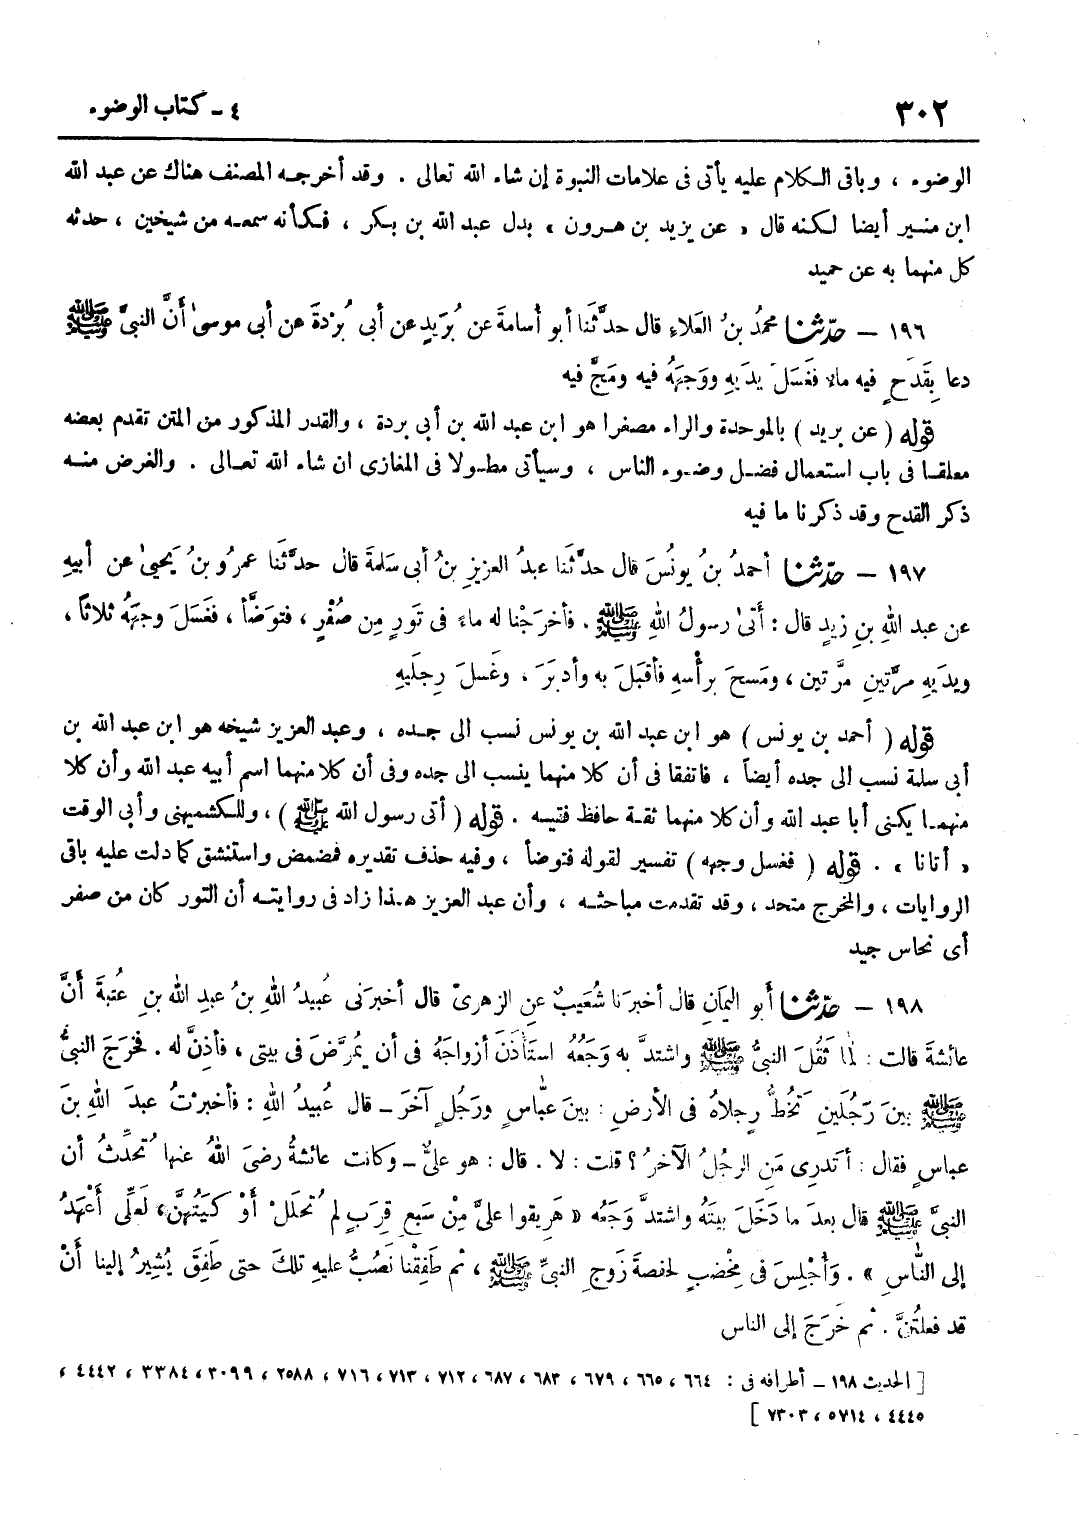 ٣٠٢ ٤ ـ كتاب الوضوء
الوضوء ، وباقى الكلام عليه يأتى فى علامات النبوة إن شاء الله تعالى . وقد أخرجه المصنف هناك عن عبد الله
ابن منير أيضا لكنه قال « عن يزيد بن هرون » بدل عبد الله بن بكر ، فكأنه سمعه من شيخين ، حدثه
كل منهما به عن حميد
١٩٦ – حدّثنا محمدُ بنُ العَلاءِ قال حدَّثَنا أبو أسامةَ عن بُرَيدٍ عن أبي بُرْدةَ عن أبي موسىٰ أنَّ النبيَّ ﷺ
دعا بِقَدَحٍ فيه ماء فغَسَلَ يدَيهِ ووَجهَهُ فيه ومَجَّ فيه
قوله ( عن بريد ) بالموحدة والراء مصغرا هو ابن عبد الله بن أبى بردة ، والقدر المذكور من المتن تقدم بعضه
معلقا فى باب استعمال فضل وضوء الناس ، وسيأتى مطولا فى المغازى ان شاء الله تعالى . والغرض منه
ذكر القدح وقد ذكرنا ما فيه
١٩٧ – حدّثنا أحمدُ بنُ يونُسَ قال حدَّثَنا عبدُ العزيزِ بنُ أبى سَلمةَ قال حدَّثَنا عمرُو بنُ يَحيىٰ عن أبيهِ
عن عبد اللهِ بنِ زيدٍ قال : أتىٰ رسولُ اللهِ ﷺ . فأخرَجْنا له ماءً فى تَورٍ مِن صُفْرٍ ، فتوَضَّأ ، فغَسَلَ وجهَهُ ثلاثاً ،
ويدَيهِ مرَّتينِ مرَّتين ، ومَسحَ برأْسهِ فأقبَلَ به وأدبَرَ ، وغَسلَ رِجلَيهِ
قوله ( أحمد بن يونس ) هو ابن عبد الله بن يونس نسب الى جده ، وعبد العزيز شيخه هو ابن عبد الله بن
أبى سلمة نسب الى جده أيضاً ، فاتفقا فى أن كلا منهما ينسب الى جده وفى أن كلا منهما اسم أبيه عبد الله وأن كلا
منهما يكنى أبا عبد الله وأن كلا منهما ثقة حافظ فقيه . قوله ( أتى رسول الله ﷺ ) ، وللكشميهنى وأبى الوقت
« أتانا » . قوله ( فغسل وجهه ) تفسير لقوله فتوضأ ، وفيه حذف تقديره فمضمض واستنشق كما دلت عليه باقى
الروايات ، والمخرج متحد ، وقد تقدمت مباحثه ، وأن عبد العزيز هذا زاد فى روايته أن التور كان من صفر
أى نحاس جيد
١٩٨ – حدّثنا أبو اليمَانِ قال أخبرَنا شُعَيبٌ عنِ الزهرىّ قال أخبرَنى عُبيدُ اللهِ بنُ عبدِ الله بنِ عُتبةَ أنَّ
عائشةَ قالت : لمّا ثَقُلَ النبيُّ ﷺ واشتدَّ به وَجَعُهُ استَأْذَنَ أزواجَهُ فى أن يُمرَّضَ فى بيتى ، فأذِنَّ له . فخرَجَ النبيُّ
ﷺ بينَ رَجُلَينِ تَخُطُّ رِجلاهُ فى الأرضِ : بينَ عبّاسٍ ورَجُلٍ آخرَ ـ قال عُبيدُ اللهِ : فأخبرْتُ عبدَ اللهِ بنَ
عباسٍ فقال : أتدرى مَنِ الرجلُ الآخرُ ؟ قلت : لا . قال : هو علىٌّ ـ وكانت عائشةُ رضىَ اللهُ عنها تُحدِّثُ أن
النبىَّ ﷺ قال بعدَ ما دَخَلَ بيتَهُ واشتدَّ وَجَعُه « هَرِيقوا علىَّ مِنْ سَبعِ قِرَبٍ لم تُحلَلْ أوْ كيَتُهنَّ ، لَعلِّى أعْهَدُ
إلى الناسِ » . وَأُجْلِسَ فى مِخْضبٍ لحفصةَ زَوجِ النبىِّ ﷺ ، ثم طَفِقْنا نَصُبُّ عليهِ تلكَ حتى طَفِقَ يُشيرُ إلينا أنْ
قد فعلتُنَّ . ثم خَرَجَ إلى الناس
[ الحديث ١٩٨ ـ أطرافه فى : ٦٦٤ ، ٦٦٥ ، ٦٧٩ ، ٦٨٣ ، ٦٨٧ ، ٧١٢ ، ٧١٣ ، ٧١٦ ، ٢٥٨٨ ، ٣٠٩٩ ، ٣٣٨٤ ، ٤٤٤٢ ،
٤٤٤٥ ، ٥٧١٤ ، ٧٣٠٣ ]